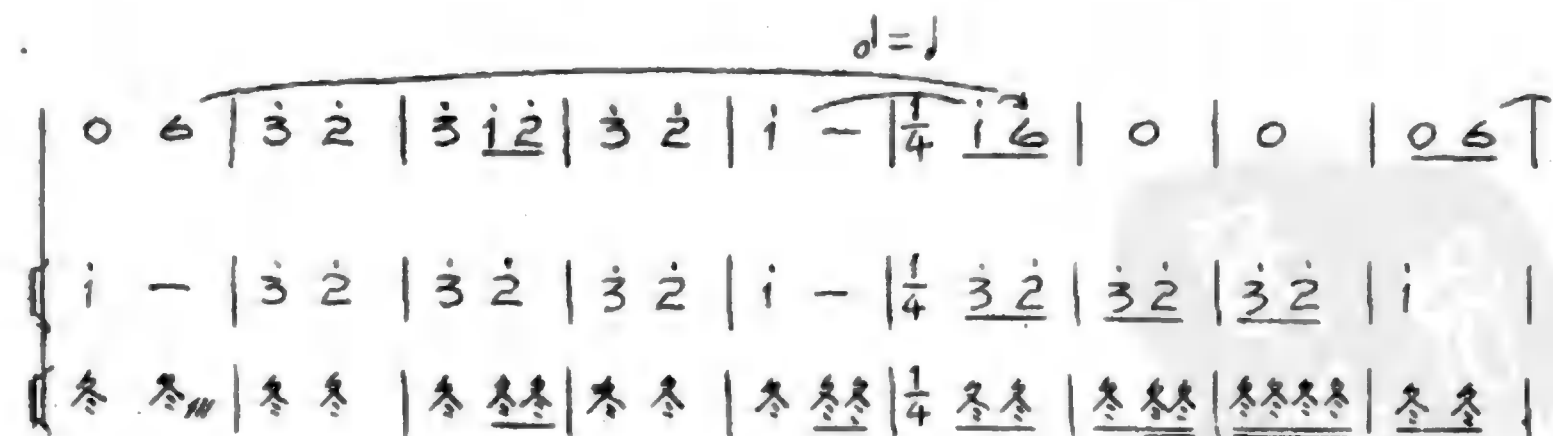 𝅗𝅥=♩
0 6 | 3̇ 2̇ | 3̇ 1̇ 2̇ | 3̇ 2̇ | 1̇ — | 1/4 1̇ 6 | 0 | 0 | 0 6 |
1̇ — | 3̇ 2̇ | 3̇ 2̇ | 3̇ 2̇ | 1̇ — | 1/4 3̇ 2̇ | 3̇ 2̇ | 3̇ 2̇ | 1̇ |
冬 冬 | 冬 冬 | 冬 冬冬 | 冬 冬 | 冬 冬冬 | 1/4 冬冬 | 冬 冬冬 | 冬冬冬冬 | 冬 冬 |